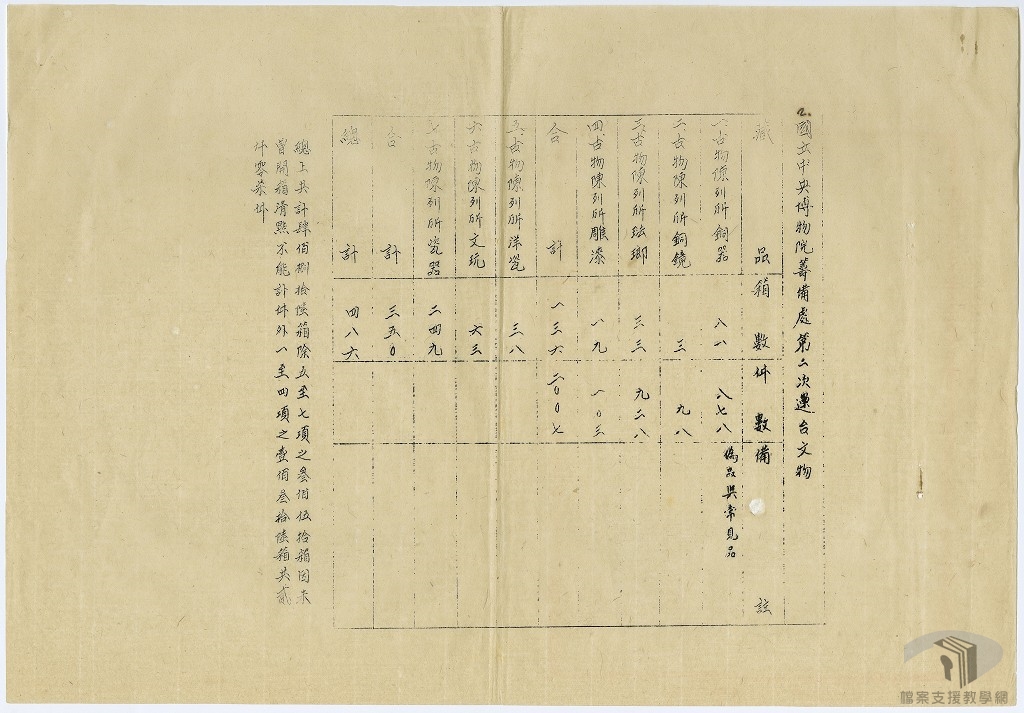 2.國立中央博物院籌備處第二次運台文物
藏品 箱數 件數 備註
一、古物陳列所銅器 八一 八七八 偽品與常見品
二、古物陳列所銅鏡 三 九八
三、古物陳列所琺瑯 三三 九二八
四、古物陳列所雕漆 一九 一〇三
合計 一三六 二〇〇七
五、古物陳列所洋瓷 三八
六、古物陳列所文玩 六三
七、古物陳列所瓷器 二四九
合計 三五〇
總計 四八六
總上共計肆佰捌拾陸箱除五至七項之叁佰伍拾箱因未
曾開箱清點不能計件外一至四項之壹佰叁拾陸箱共貳
仟零柒件
檔案支援教學網